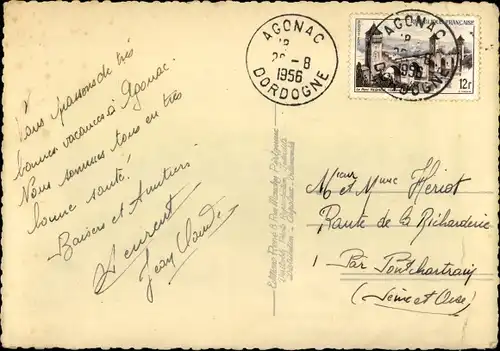 AGONAC
18
28-8
1956
DORDOGNE
AGONAC
18
1956
DORDOGNE
RÉPUBLIQUE FRANÇAISE
12f
Nous passons de très
bonnes vacances à Agonac.
Nous sommes tous en très
bonne santé!
Baisers et Amitiés
Laurent
Jean Claude
Mieur et Mme Hériot
Route de la Richarderie
Par Pontchartrain
(Seine et Oise)